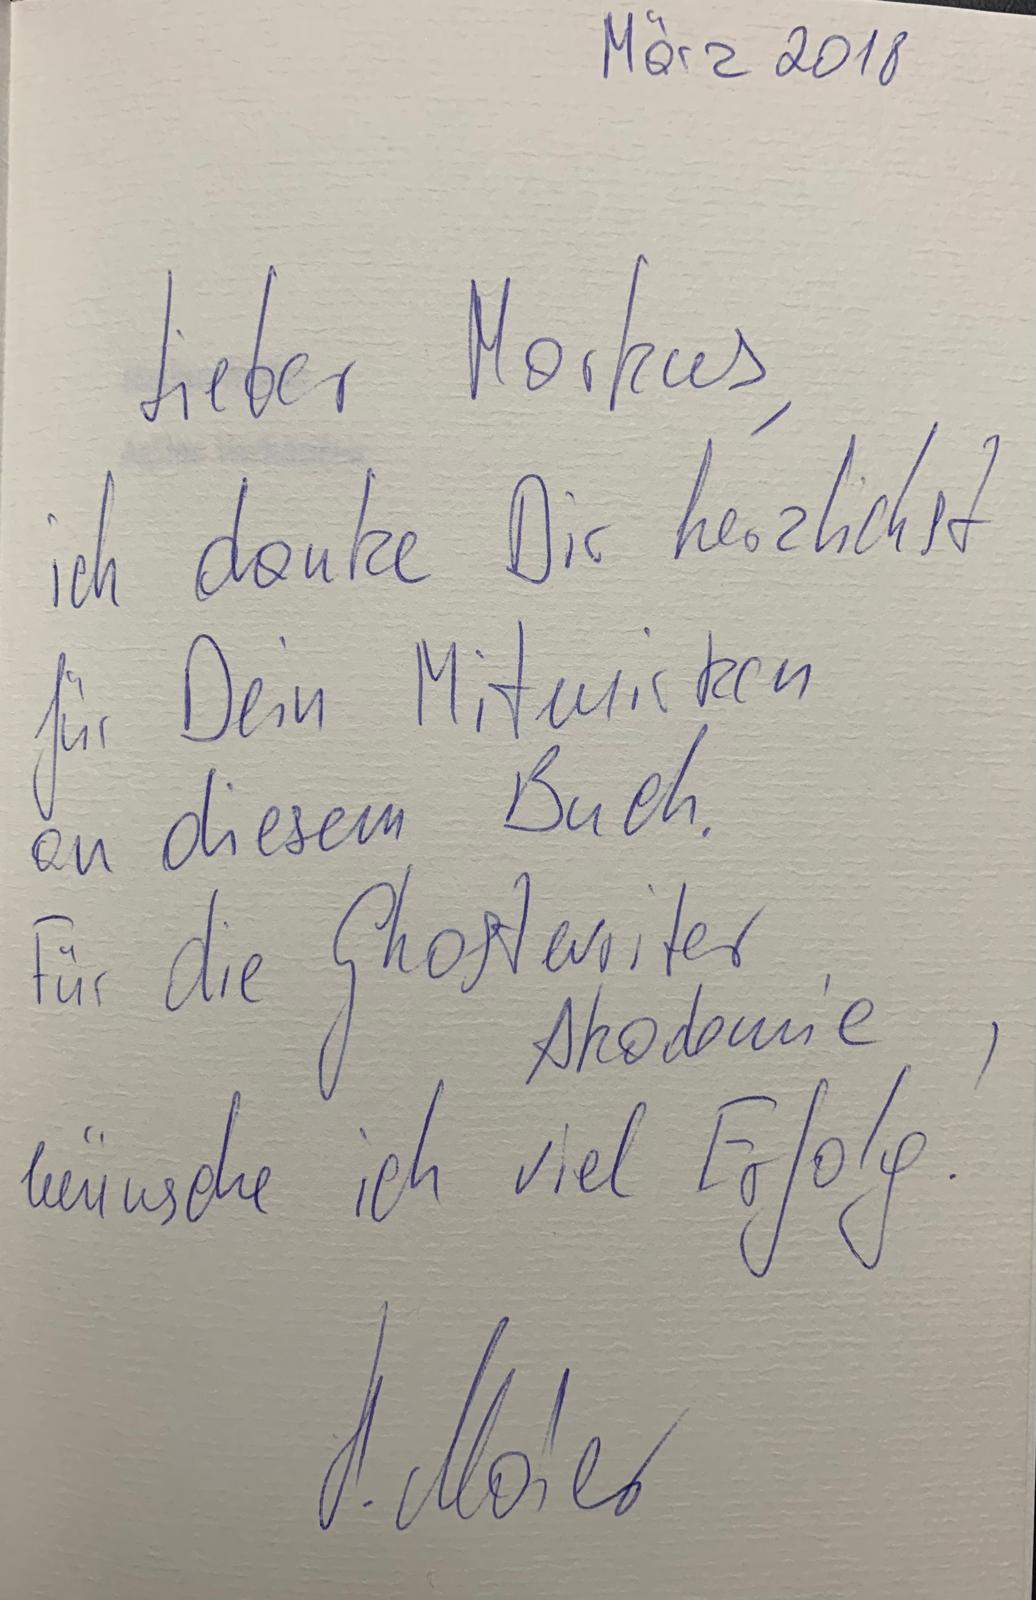 März 2018
Lieber Markus,
ich danke Dir herzlichst
für Dein Mitwirken
an diesem Buch.
Für die Ghostwriter
Akademie,
wünsche ich viel Erfolg.
Maier